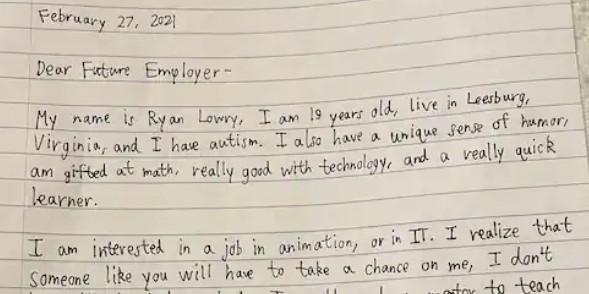 February 27, 2021
Dear Future Employer-
My name is Ryan Lowry, I am 19 years old, live in Leesburg,
Virginia, and I have autism. I also have a unique sense of humor,
am gifted at math, really good with technology, and a really quick
learner.
I am interested in a job in animation, or in IT. I realize that
someone like you will have to take a chance on me, I don't
to teach